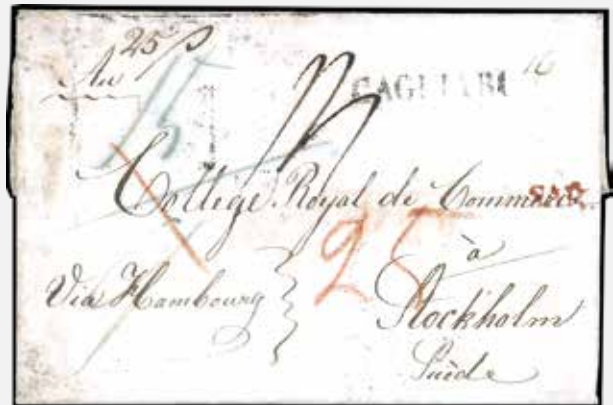 25
CAGLIARI 16
15
College Royal de Commerce
SAR.
25
à
Via Hambourg
Stockholm
Suède